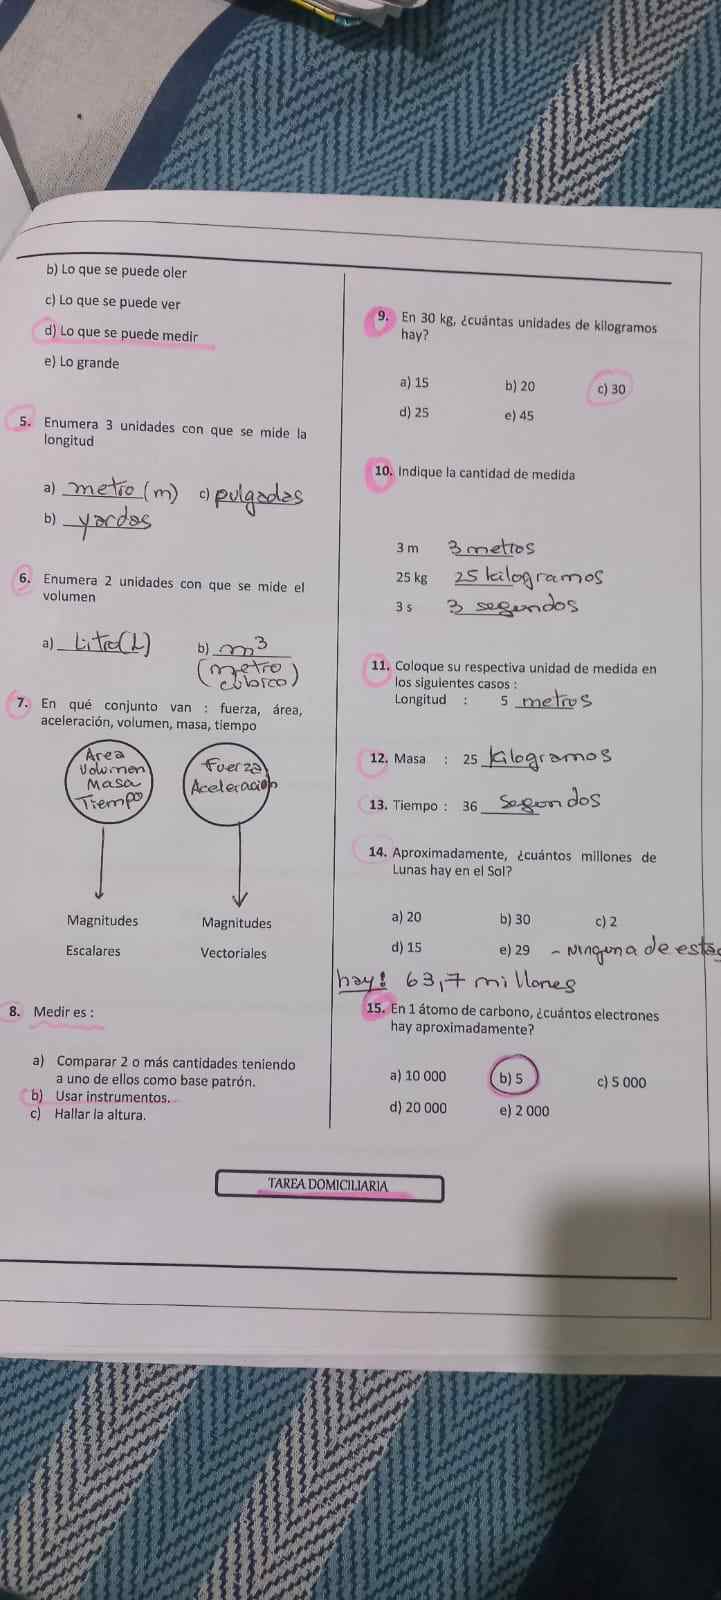 b) Lo que se puede oler
c) Lo que se puede ver
d) Lo que se puede medir
e) Lo grande
5. Enumera 3 unidades con que se mide la
longitud
a) metro (m) c) pulgadas
b) yardas
6. Enumera 2 unidades con que se mide el
volumen
a) Litro (L) b) m³
(metro
cúbico)
7. En qué conjunto van : fuerza, área,
aceleración, volumen, masa, tiempo
Área
Volumen
Masa
Tiempo
Fuerza
Aceleración
Magnitudes Magnitudes
Escalares Vectoriales
8. Medir es :
a) Comparar 2 o más cantidades teniendo
a uno de ellos como base patrón.
b) Usar instrumentos.
c) Hallar la altura.
9. En 30 kg, ¿cuántas unidades de kilogramos
hay?
a) 15 b) 20 c) 30
d) 25 e) 45
10. Indique la cantidad de medida
3 m 3 metros
25 kg 25 kilogramos
3 s 3 segundos
11. Coloque su respectiva unidad de medida en
los siguientes casos :
Longitud : 5 metros
12. Masa : 25 kilogramos
13. Tiempo : 36 segundos
14. Aproximadamente, ¿cuántos millones de
Lunas hay en el Sol?
a) 20 b) 30 c) 2
d) 15 e) 29 - Ninguna de estas
hay! 63,7 millones
15. En 1 átomo de carbono, ¿cuántos electrones
hay aproximadamente?
a) 10 000 b) 5 c) 5 000
d) 20 000 e) 2 000
TAREA DOMICILIARIA